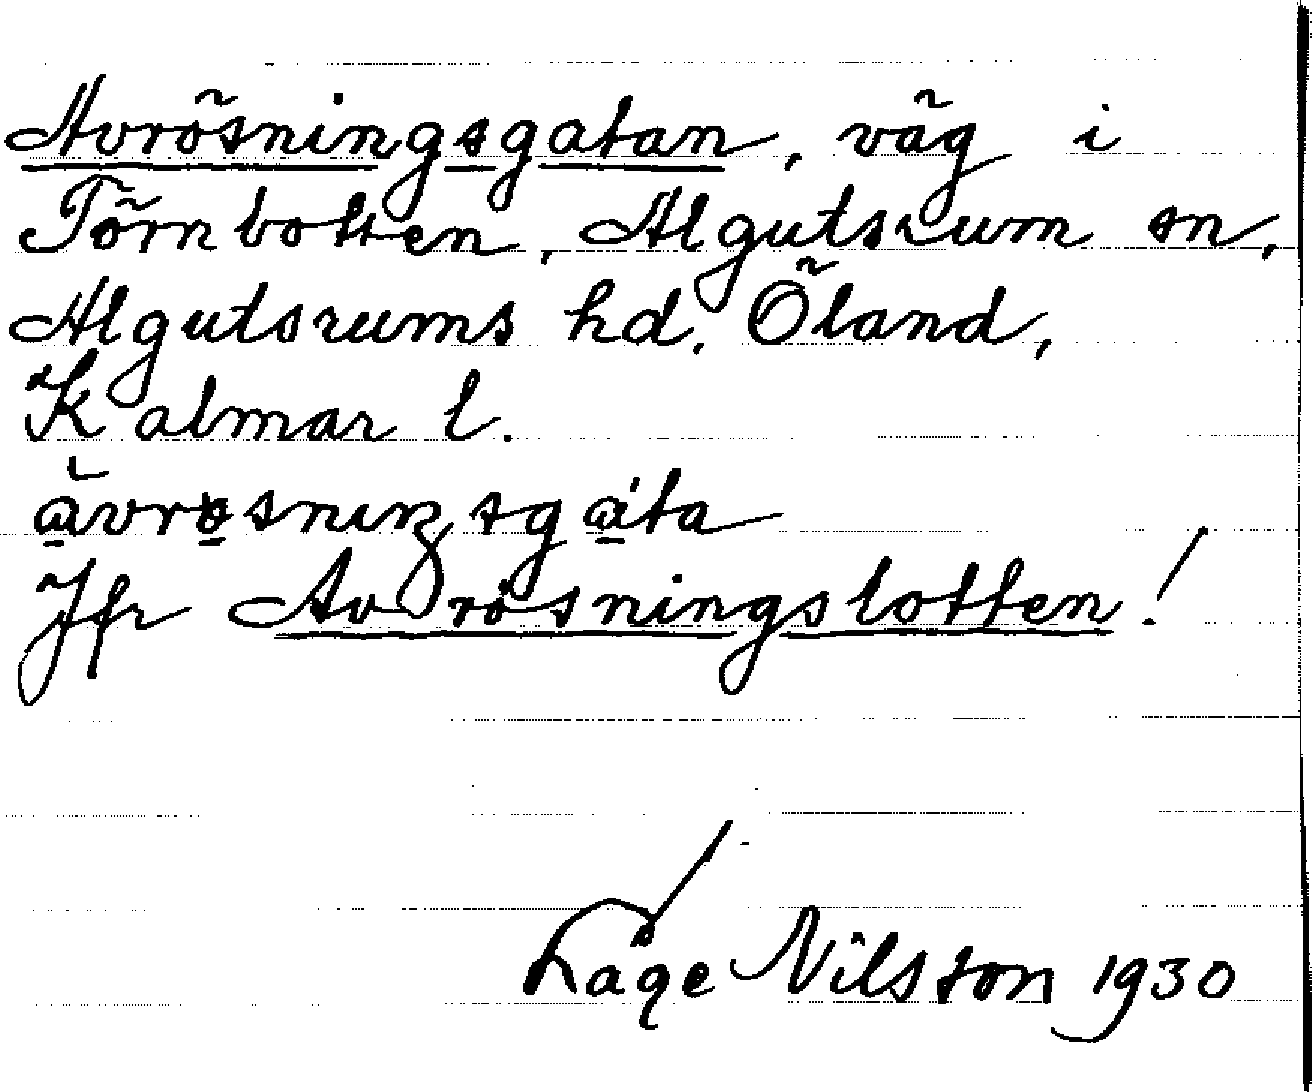 Avrösningsgatan, väg i
Törnbotten, Algutsrum sn,
Algutsrums hd, Öland,
Kalmar l.
Jfr Avrösningslotten!
Låge Nilsson 1930